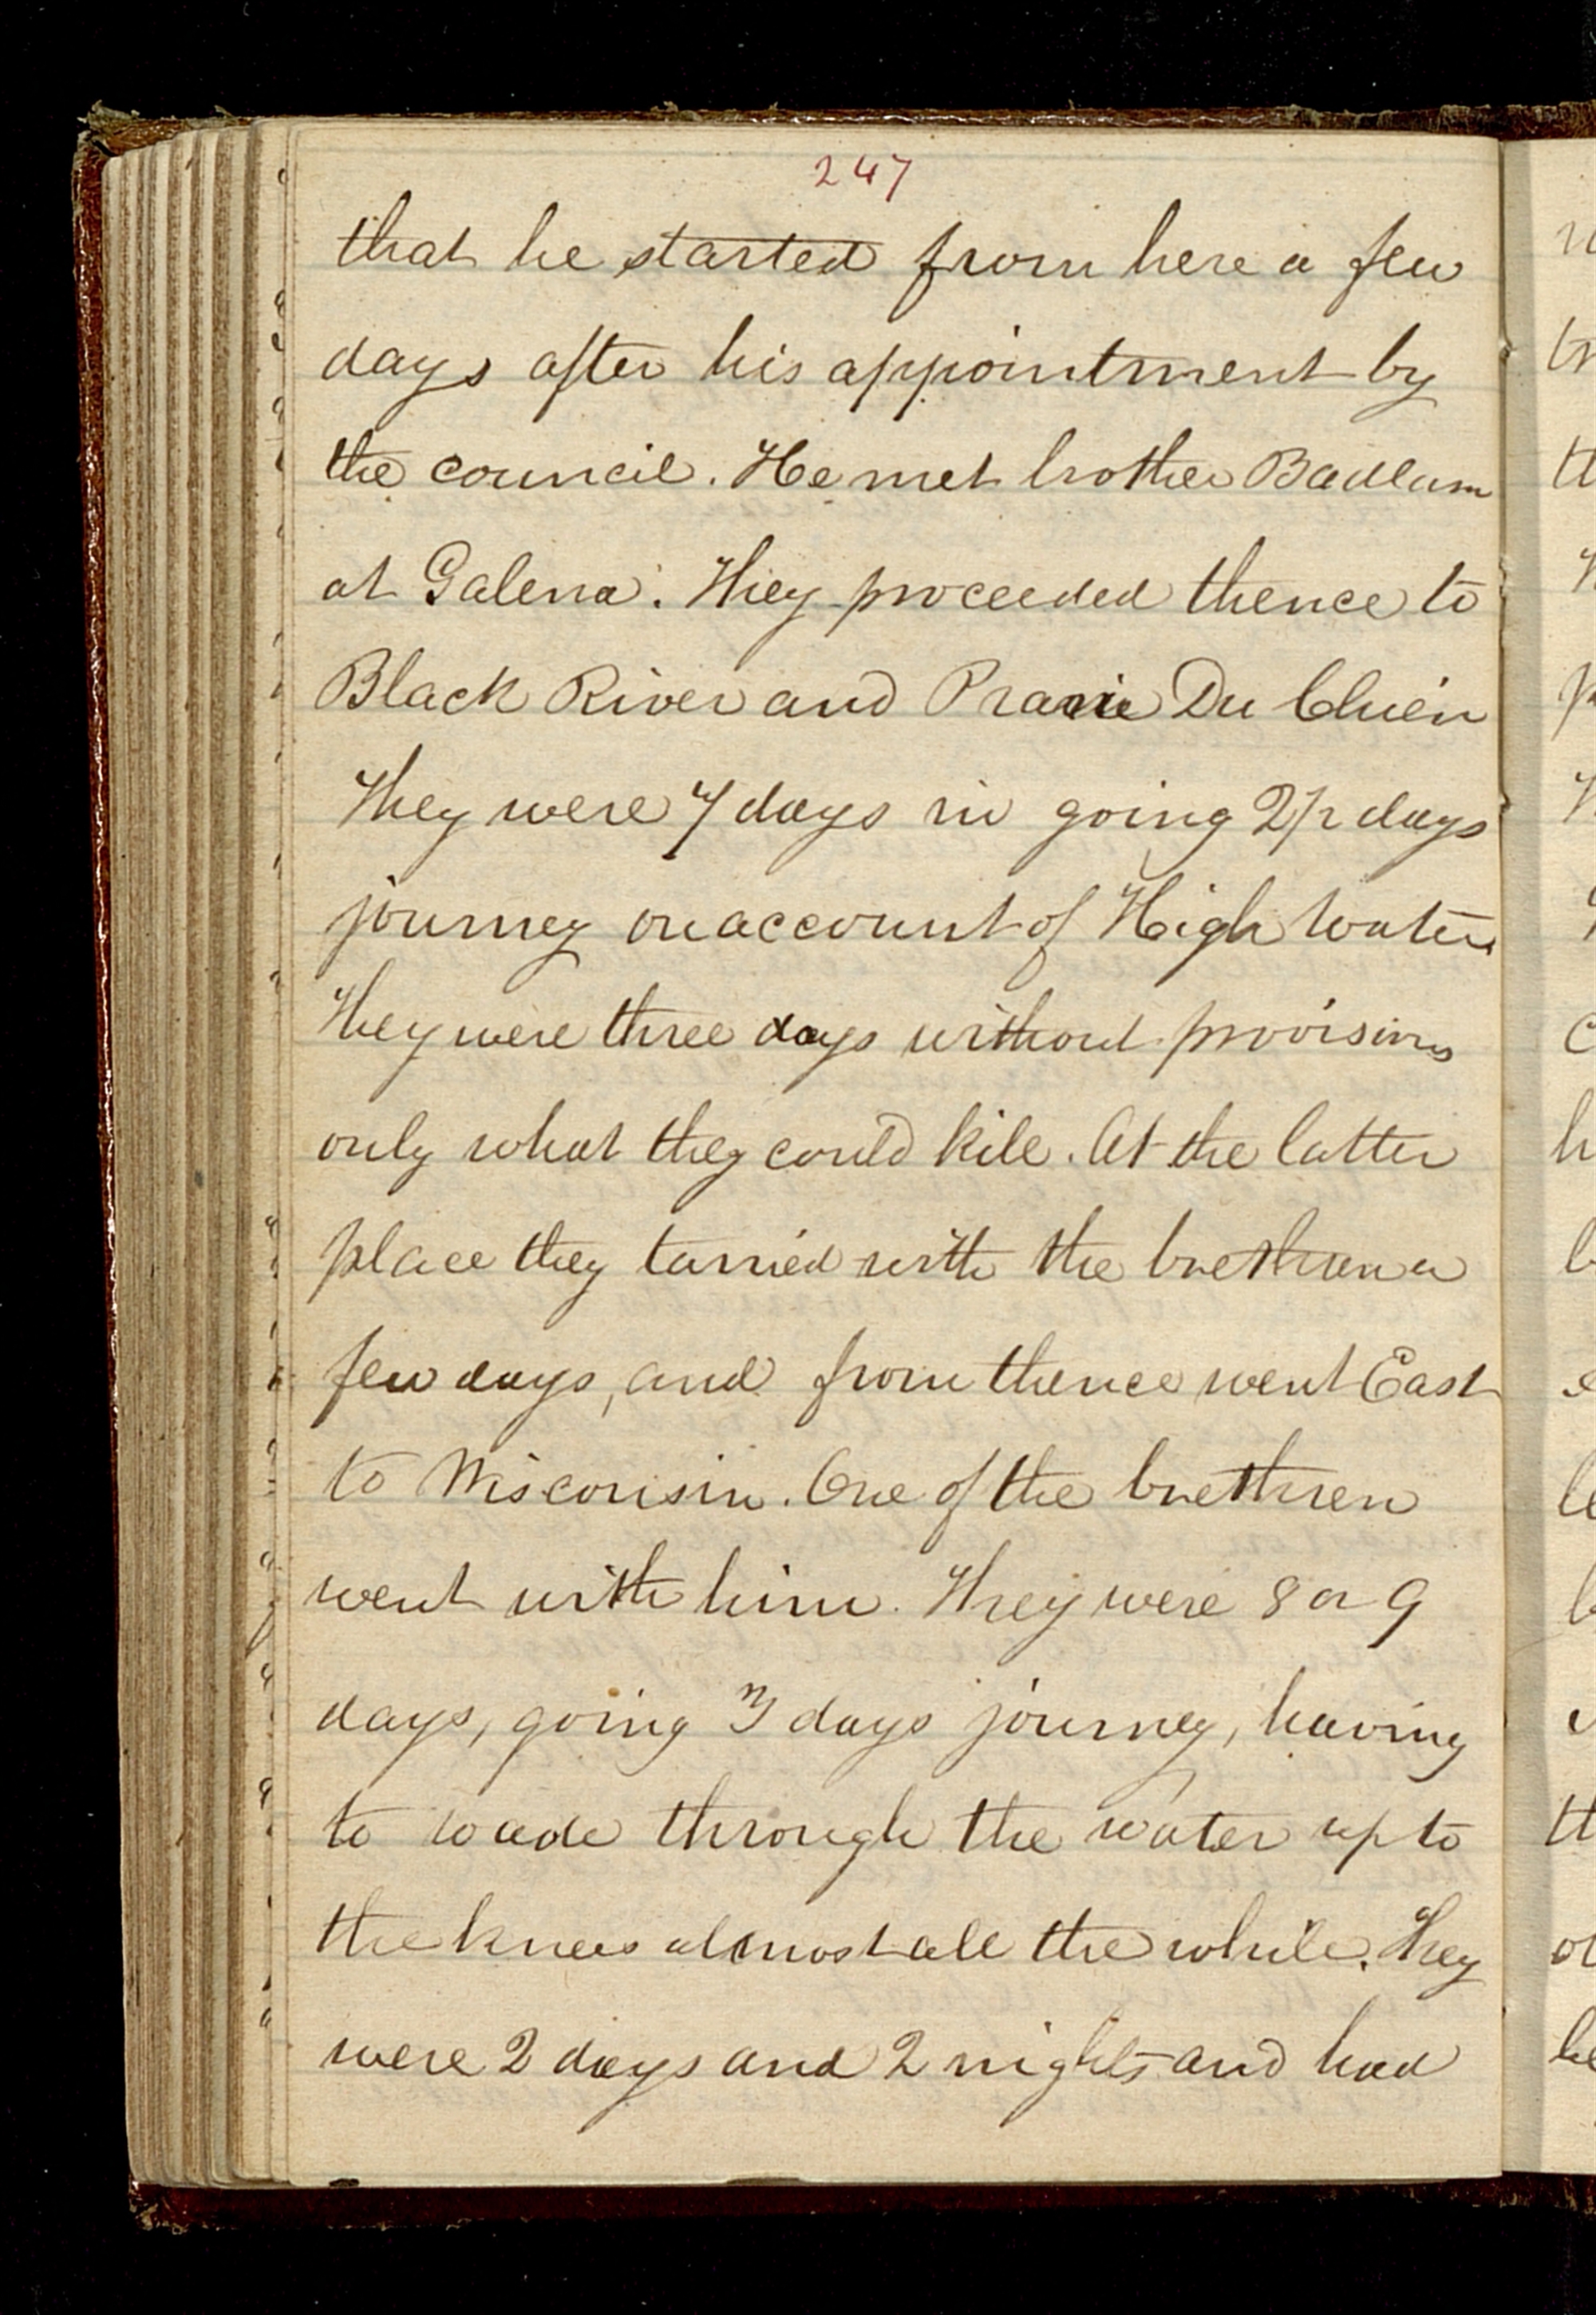 247
that he started from here a few
days after his appointment by
the council. He met brother Badlam
at Galena. They proceeded thence to
Black River and Prarie Du Chien
They were 7 days in going 2 1/2 days
journey on account of High water
They were three days without provisions
only what they could kill. At the latter
place they tarried with the brethren a
few days, and from thence went East
to Wisconsin. One of the brethren
went with him. They were 8 or 9
days, going 3 days journey, having
to wade through the water up to
the knees almost all the while. They
were 2 days and 2 nights and had